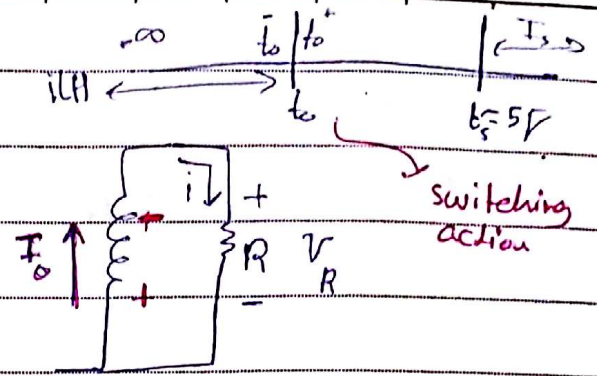 -∞ t₀⁻ t₀⁺ Is
i(t)
t₀ ts=5τ
switching
action
i +
I₀ + R V_R
+ -